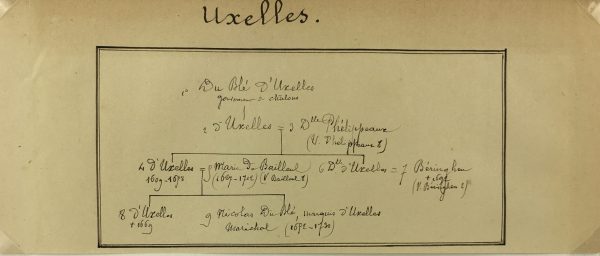 Uxelles.
1 Du Blé D'Uxelles
gouverneur de chalons
2 d'Uxelles = 3 Dlle Phélippeaux
(V. Phélippeaux 2)
4 D'Uxelles = 5 Marie De Bailleul 6 Dlle d'Uxelles = 7 Béringhen
(V Bailleul 2) + 1692
(V. Béringhen 2)
8 d'Uxelles 9 Nicolas Du Blé, marquis d'Uxelles
+ 1669 Maréchal (1652-1730)